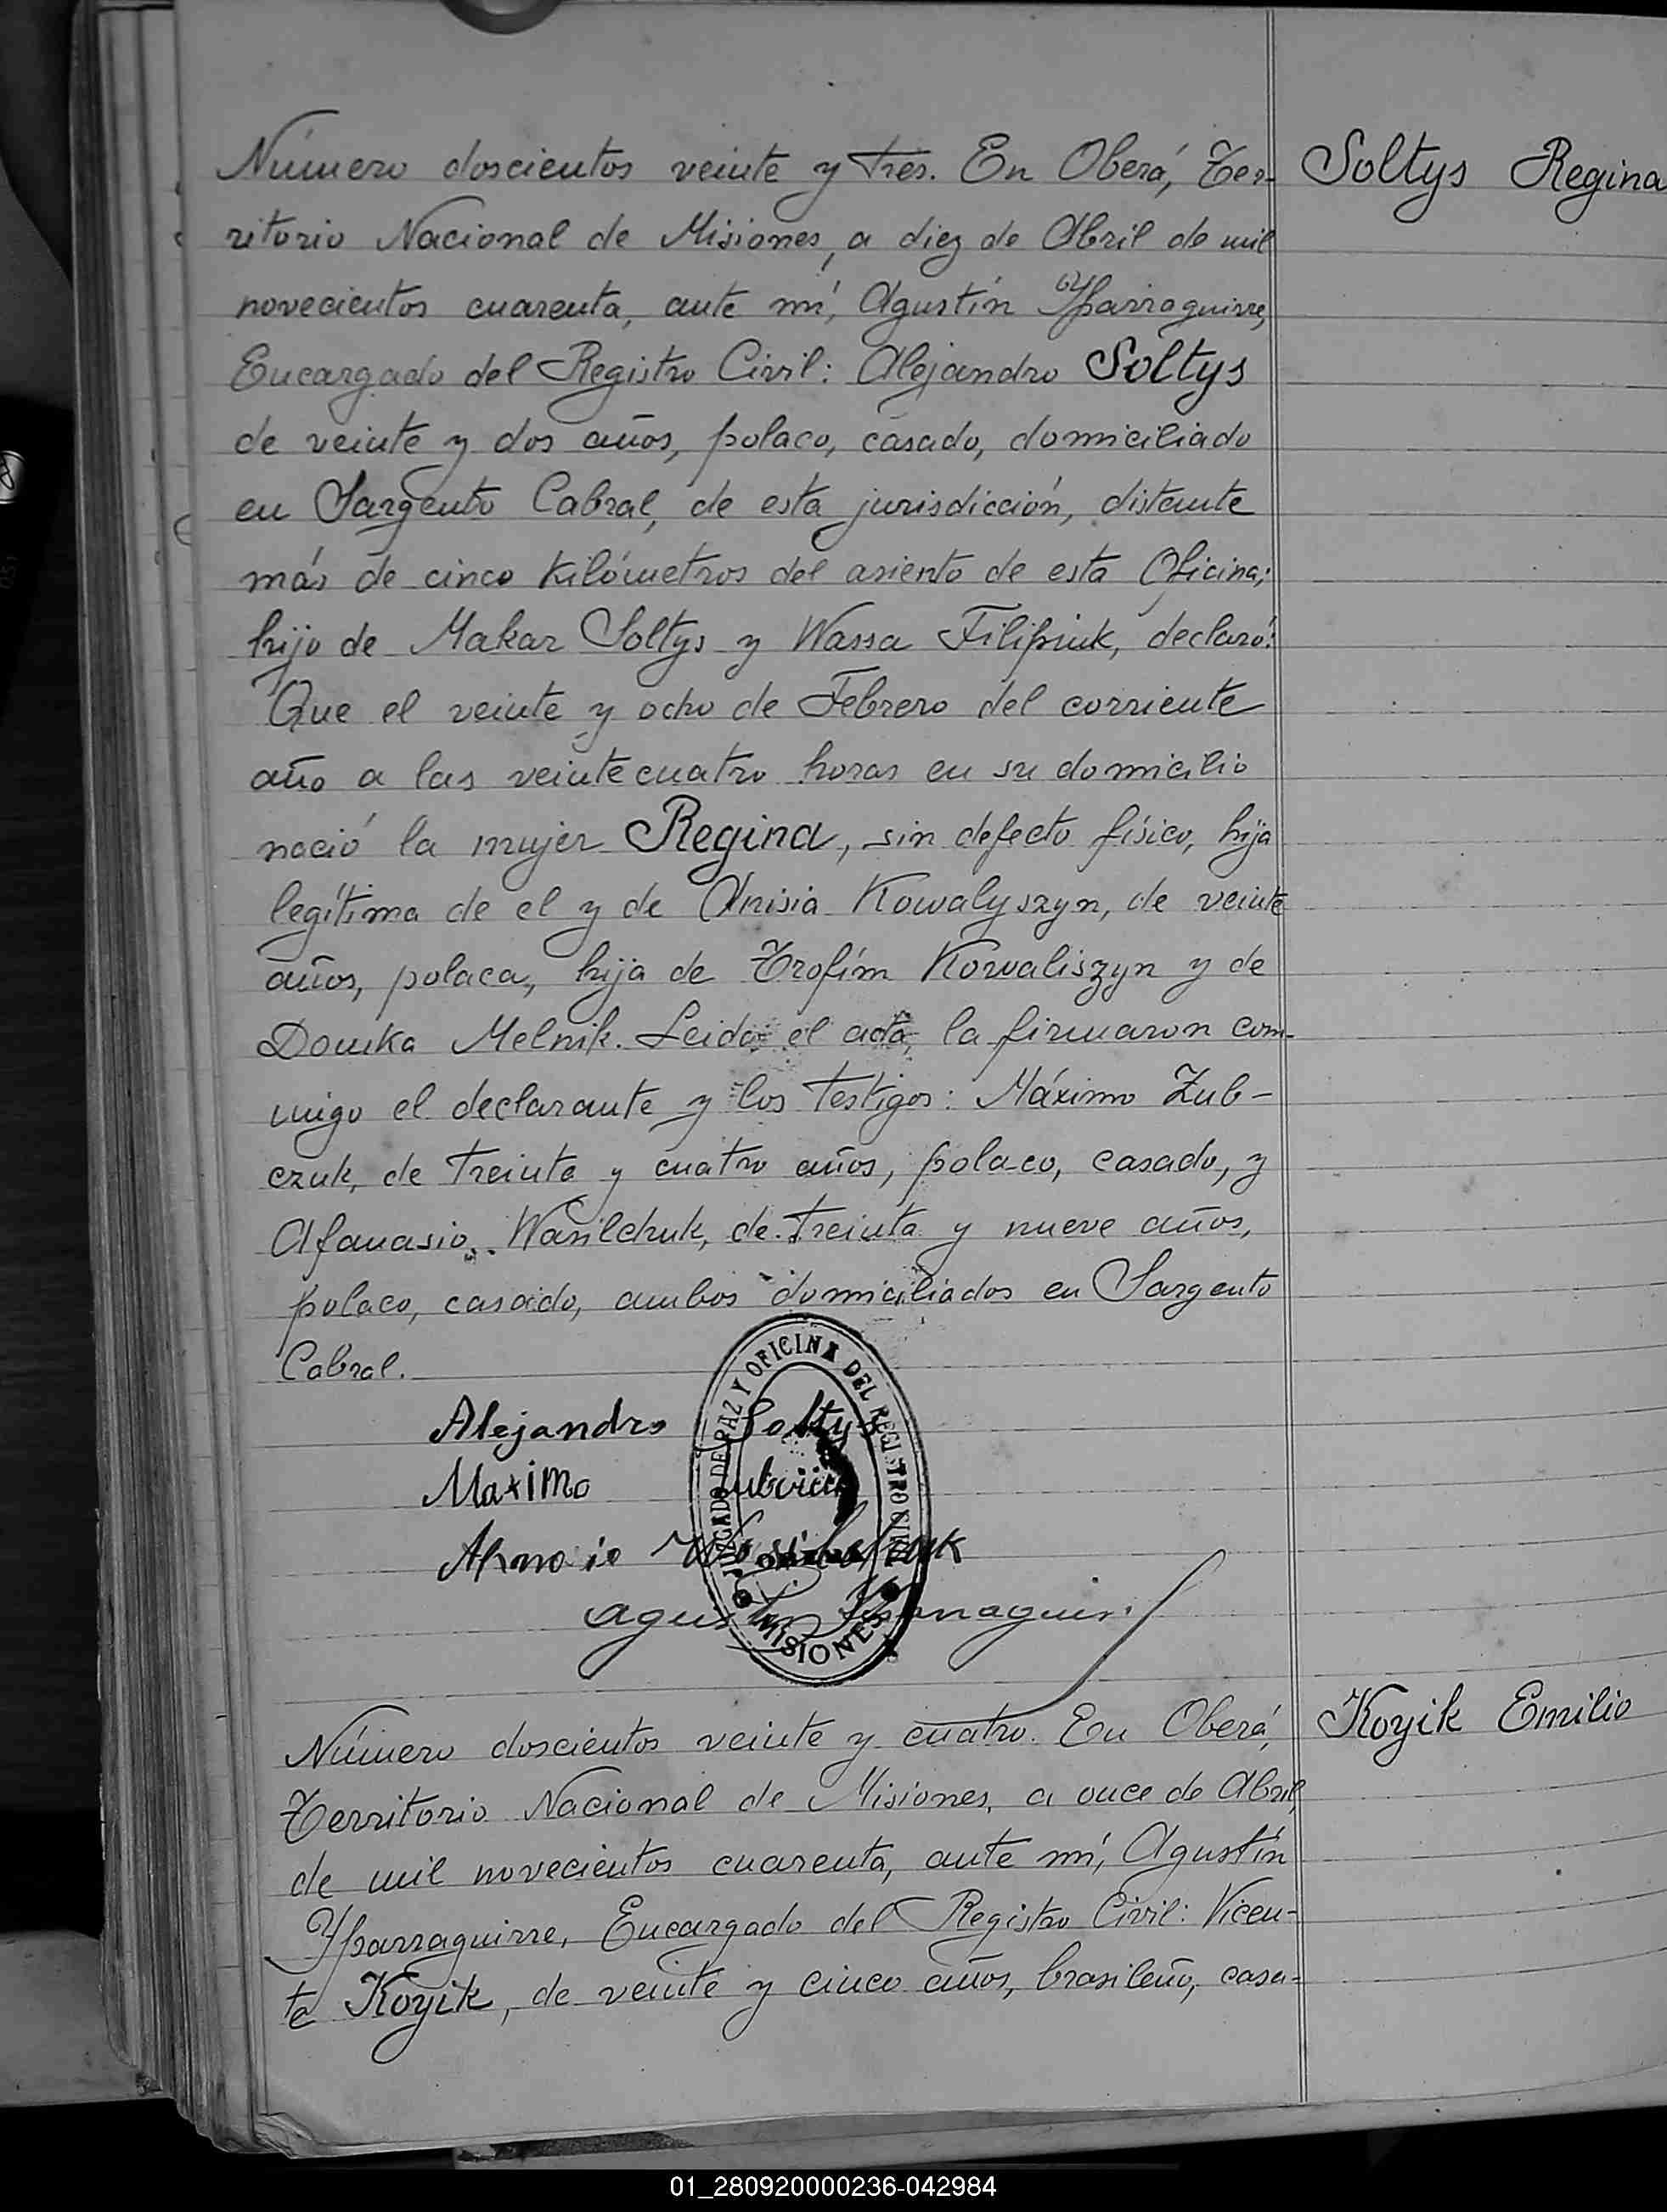 Número doscientos veinte y tres. En Oberá, Ter-
Soltys Regina
ritorio Nacional de Misiones, a diez de Abril de mil
novecientos cuarenta, ante mí, Agustín Yparraguirre,
Encargado del Registro Civil: Alejandro Soltys
de veinte y dos años, polaco, casado, domiciliado
en Sargento Cabral, de esta jurisdicción, distante
más de cinco kilómetros del asiento de esta Oficina;
hijo de Makar Soltys y Wassa Filipiuk, declaró:
Que el veinte y ocho de Febrero del corriente
año a las veintecuatro horas en su domicilio
nació la mujer Regina, sin defecto físico, hija
legítima de el y de Anisia Kowalyszyn, de veinte
años, polaca, hija de Trofím Kowaliszyn y de
Domka Melnik. Leida el acta, la firmaron con-
migo el declarante y los testigos: Máximo Zub-
czuk, de treinta y cuatro años, polaco, casado, y
Afanasio Wasilchuk, de treinta y nueve años,
polaco, casado, ambos domiciliados en Sargento
Cabral.
JUZGADO DE PAZ Y OFICINA DEL REGISTRO CIVIL
Alejandro Soltys
Maximo
MISIONES
Número doscientos veinte y cuatro. En Oberá,
Koyik Emilio
Territorio Nacional de Misiones, a once de Abril,
de mil novecientos cuarenta, ante mí, Agustín
Yparraguirre, Encargado del Registro Civil: Vicen-
te Koyik, de veinte y cinco años, brasileño, casa-
01_280920000236-042984